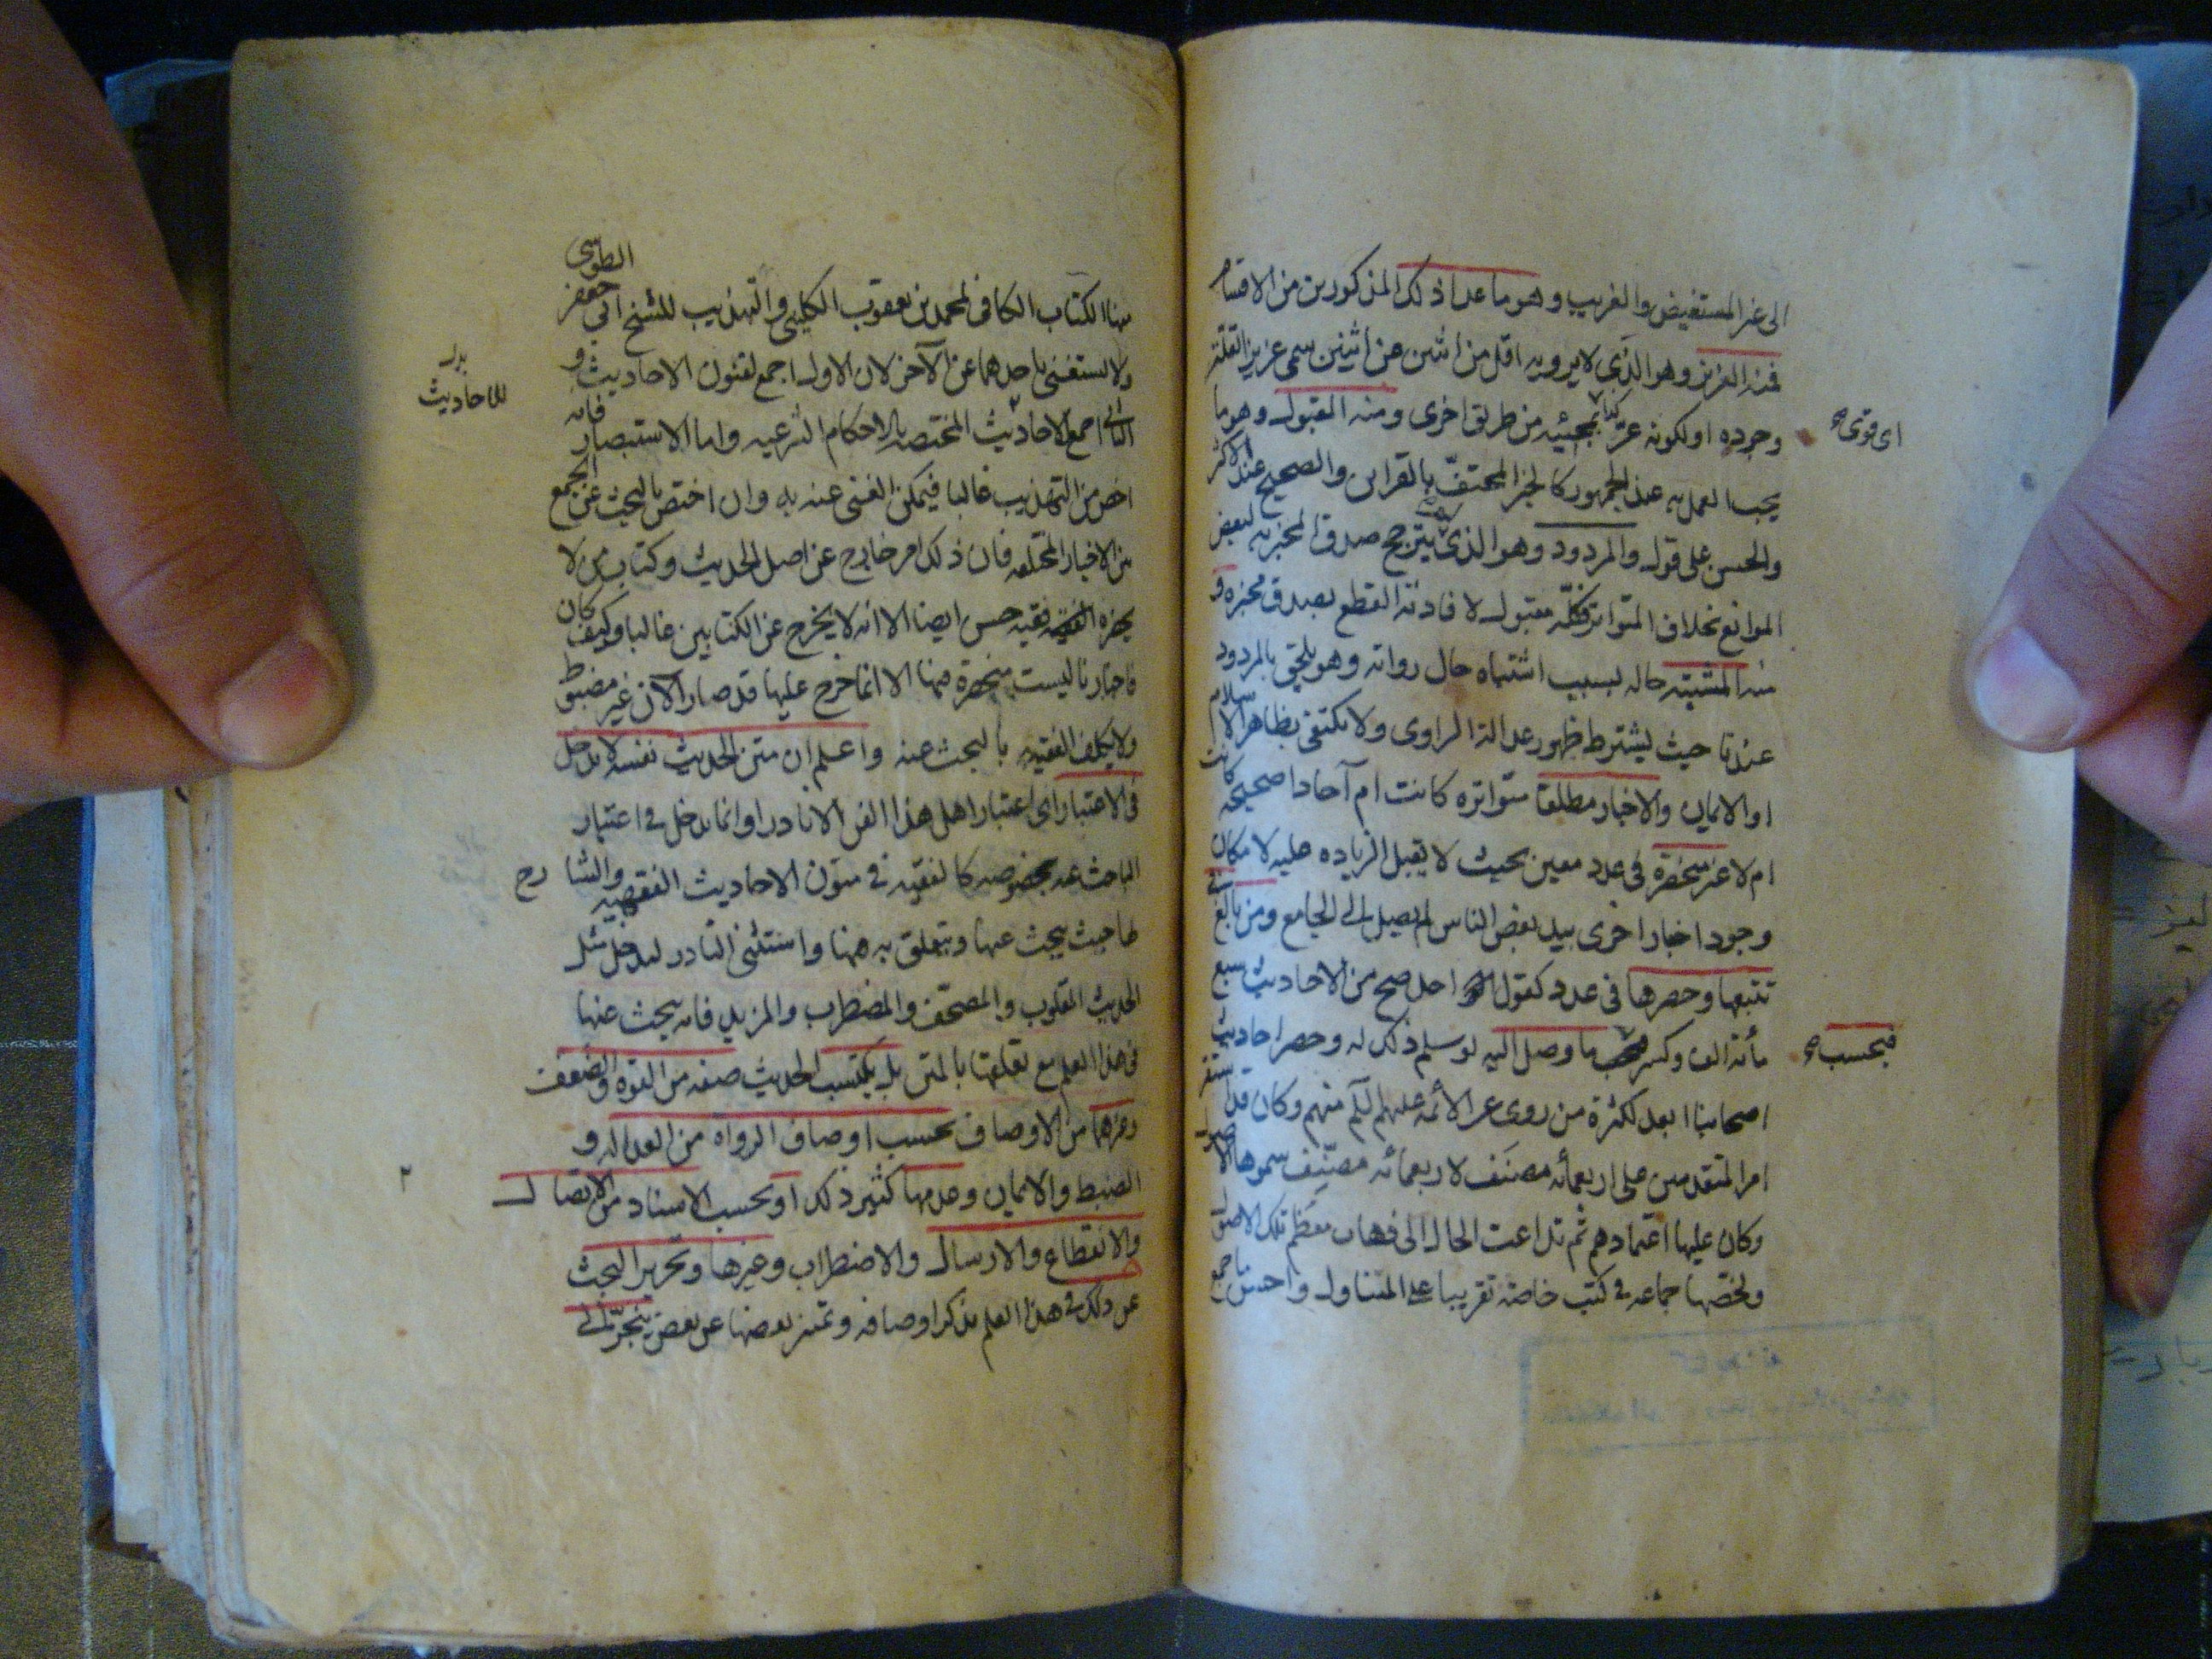 الى غير المستفيض والغريب وهو ما عدا ذلك المذكورين من الاقسام
فمنه العزيز وهو الذي لا يرويه اقل من اثنين عن اثنين سمي عزيزا لقلة
وجوده او لكونه عز بمجيئه من طريق اخرى ومنه المقبول وهو ما
اى قوى
يجب العمل به عند الجمهور كالخبر المحتف بالقراين والصحيح عند الاكثر
والحسن على قول والمردود وهو الذي يترجح صدق المخبر به لبعض
الموانع بخلاف المتواتر فكله مقبول لافادته القطع بصدق مخبره و
منه المشتبه حاله بسبب اشتباه حال رواته وهو يلحق بالمردود
عندنا حيث يشترط ظهور عدالة الراوى ولا نكتفى بظاهر الاسلام
او الايمان والاخبار مطلقا متواترة كانت ام آحادا صحيحة كانت
ام لا غير منحصرة فى عدد معين بحيث لا يقبل الزياده عليه لامكان
وجود اخبار اخرى بيد بعض الناس لم يصل الى الجامع ومن بالغ فى
تتبعها وحصرها فى عدد كقول احمد صح من الاحاديث سبع
مأته الف وكسر ما وصل اليه لو سلم ذلك له وحصر احاديث
فبحسب
اصحابنا ابعد لكثرة من روى عن الائمه عليهم السلم منهم وكان قد استقر
امر المتقدمين على اربعمائه مصنف لاربعمائه مصنف سموها الاصول
وكان عليها اعتمادهم ثم تداعت الحال الى ذهاب معظم تلك الاصول
ولخصها جماعه فى كتب خاصة تقريبا على المتناول واحسن ما جمع
منها الكتاب الكافى لمحمد بن يعقوب الكلينى والتهذيب للشيخ ابى جعفر الطوسى
ولا يستغنى باحدهما عن الآخر لان الاول اجمع لفنون الاحاديث و
الثانى اجمع الاحاديث المختصه بالاحكام الشرعيه واما الاستبصار فانه
بدل
للاحاديث
اخص من التهذيب غالبا فيمكن الغنى عنه به وان اختص بالبحث عن الجمع
بين الاخبار المختلفه فان ذلك امر خارج عن اصل الحديث وكتاب من لا
يحضره الفقيه حسن ايضا الا انه لا يخرج عن الكتابين غالبا وكيف كان
فاخبارنا ليست منحصرة فيها الا انما خرج عليها قد صار الآن غير مضبوط
ولا يكلف الفقيه بالبحث عنه واعلم ان متن الحديث نفسه لا يدخل
فى الاعتبار اى اعتبار اهل هذا الفن الا نادرا وانما يدخل فى اعتبار
الباحث عنه بخصوصه كالفقيه فى متون الاحاديث الفقهيه والشارح
لها حيث يبحث عنها ويتعلق به منها واستثنى النادر ليدخل مثل
الحديث المقلوب والمصحف والمضطرب والمزيد فانه يبحث عنها
فى هذا العلم مع تعلقها بالمتن بل يكتسب الحديث صفه من القوه والضعف
وغيرهما من الاوصاف بحسب اوصاف الرواه من العداله و
الضبط والايمان وعدمها كثير ذلك او بحسب الاسناد من الاتصال
والانقطاع والارسال والاضطراب وغيرها وتحرير البحث
عن ذلك فى هذا العلم بذكر اوصافه وتميز بعضها عن بعض ينجر الى